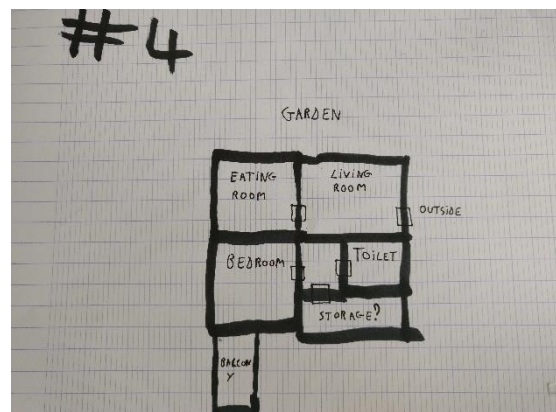 #4
GARDEN
EATING
ROOM
LIVING
ROOM
OUTSIDE
BEDROOM
TOILET
STORAGE?
BALCON
Y